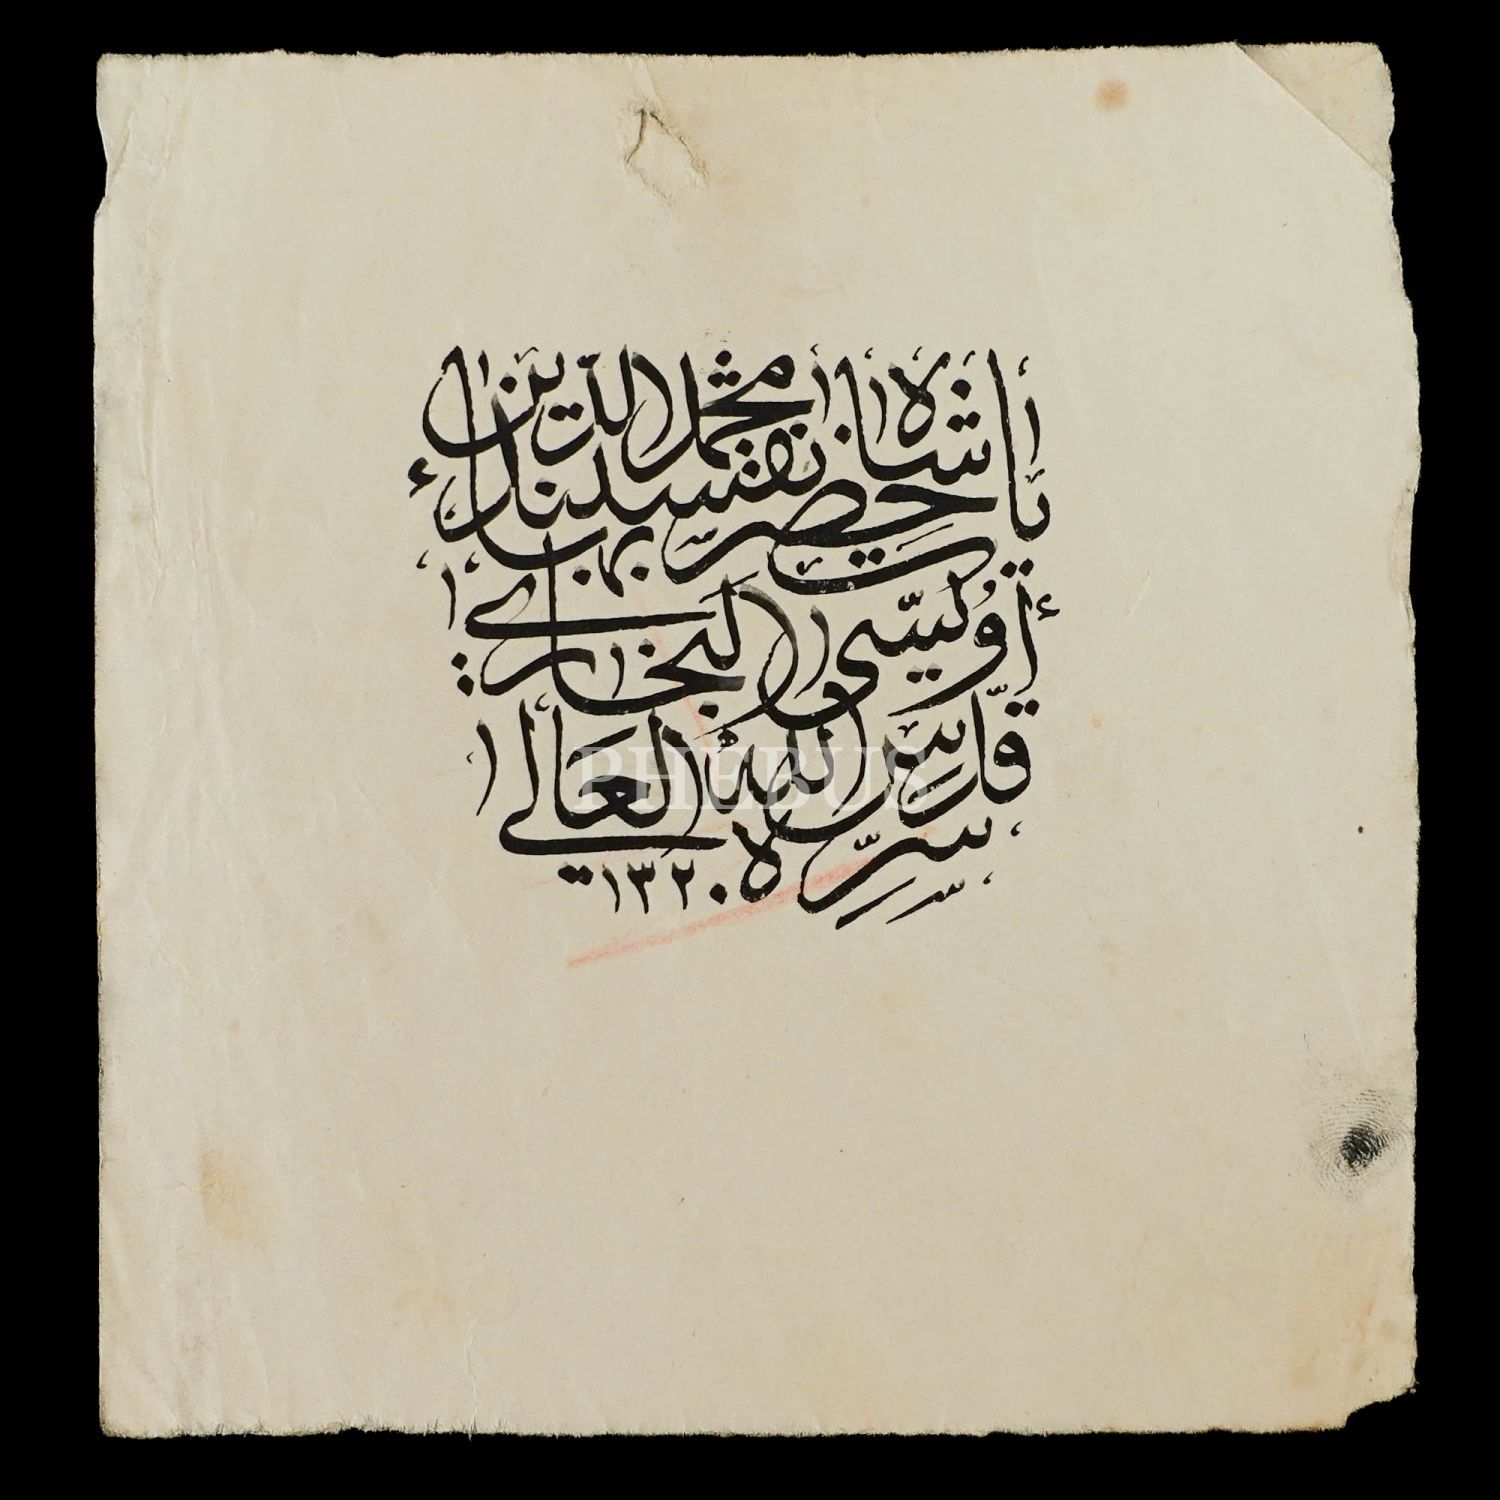 يا حضرت شاه نقشبند محمد بهاء الدين
أويسي البخاري
قدس الله سره العالي
١٣٢٠
PHEBUS